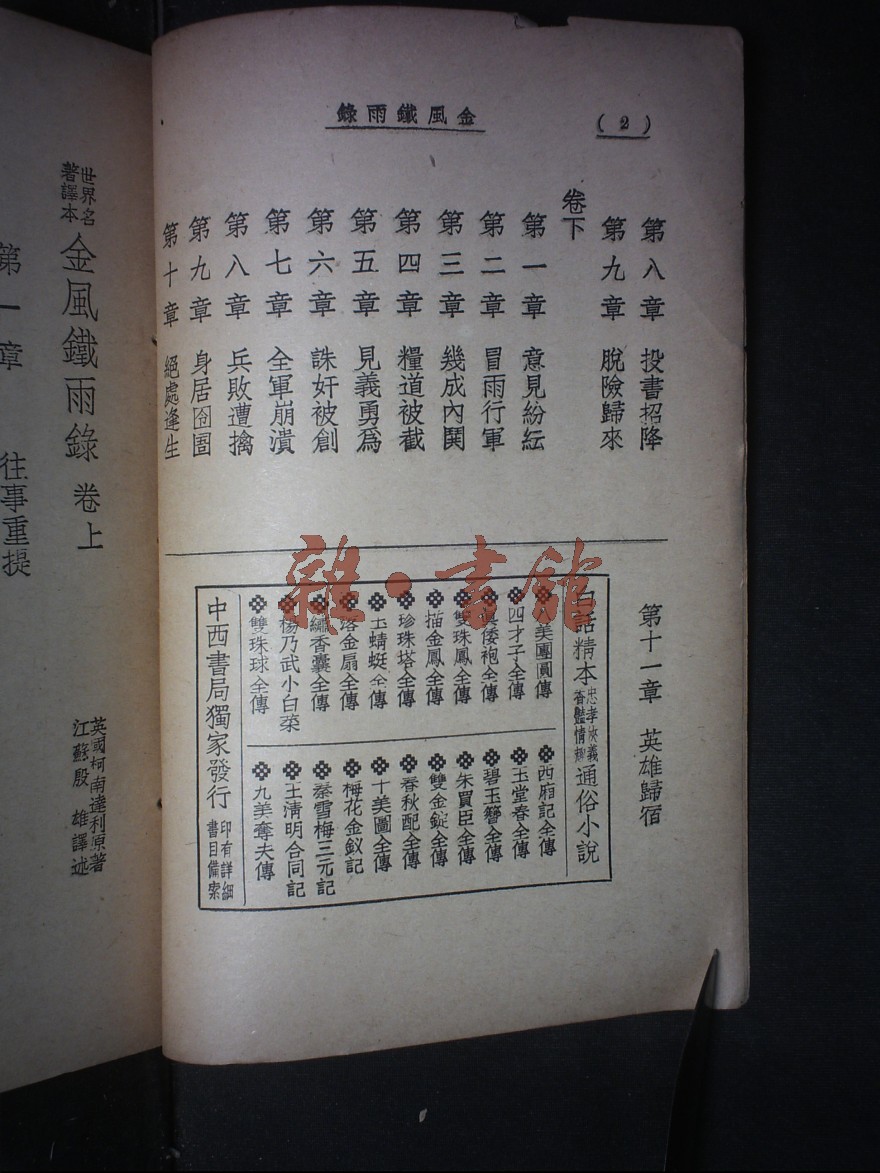 (2)
金風鐵雨錄
第八章 投書招降
第九章 脫險歸來
卷下
第一章 意見紛紜
第二章 冒雨行軍
第三章 幾成內鬨
第四章 糧道被截
第五章 見義勇爲
第六章 誅奸被創
第七章 全軍崩潰
第八章 兵敗遭擒
第九章 身居囹圄
第十章 絕處逢生
第十一章 英雄歸宿
白話精本 忠孝俠義 香豔情 通俗小說
美團圓傳
四才子全傳
倭袍全傳
雙珠鳳全傳
描金鳳全傳
珍珠塔全傳
玉蜻蜓全傳
落金扇全傳
繡香囊全傳
楊乃武小白菜
雙珠球全傳
西廂記全傳
玉堂春全傳
碧玉簪全傳
朱買臣全傳
雙金錠全傳
春秋配全傳
十美圖全傳
梅花金釵記
秦雪梅三元記
王清明合同記
九美奪夫傳
中西書局獨家發行 印有詳細書目備索
雜·書館
世界名著譯本 金風鐵雨錄 卷上
英國柯南達利原著
江蘇殷雄譯述
第一章 往事重提